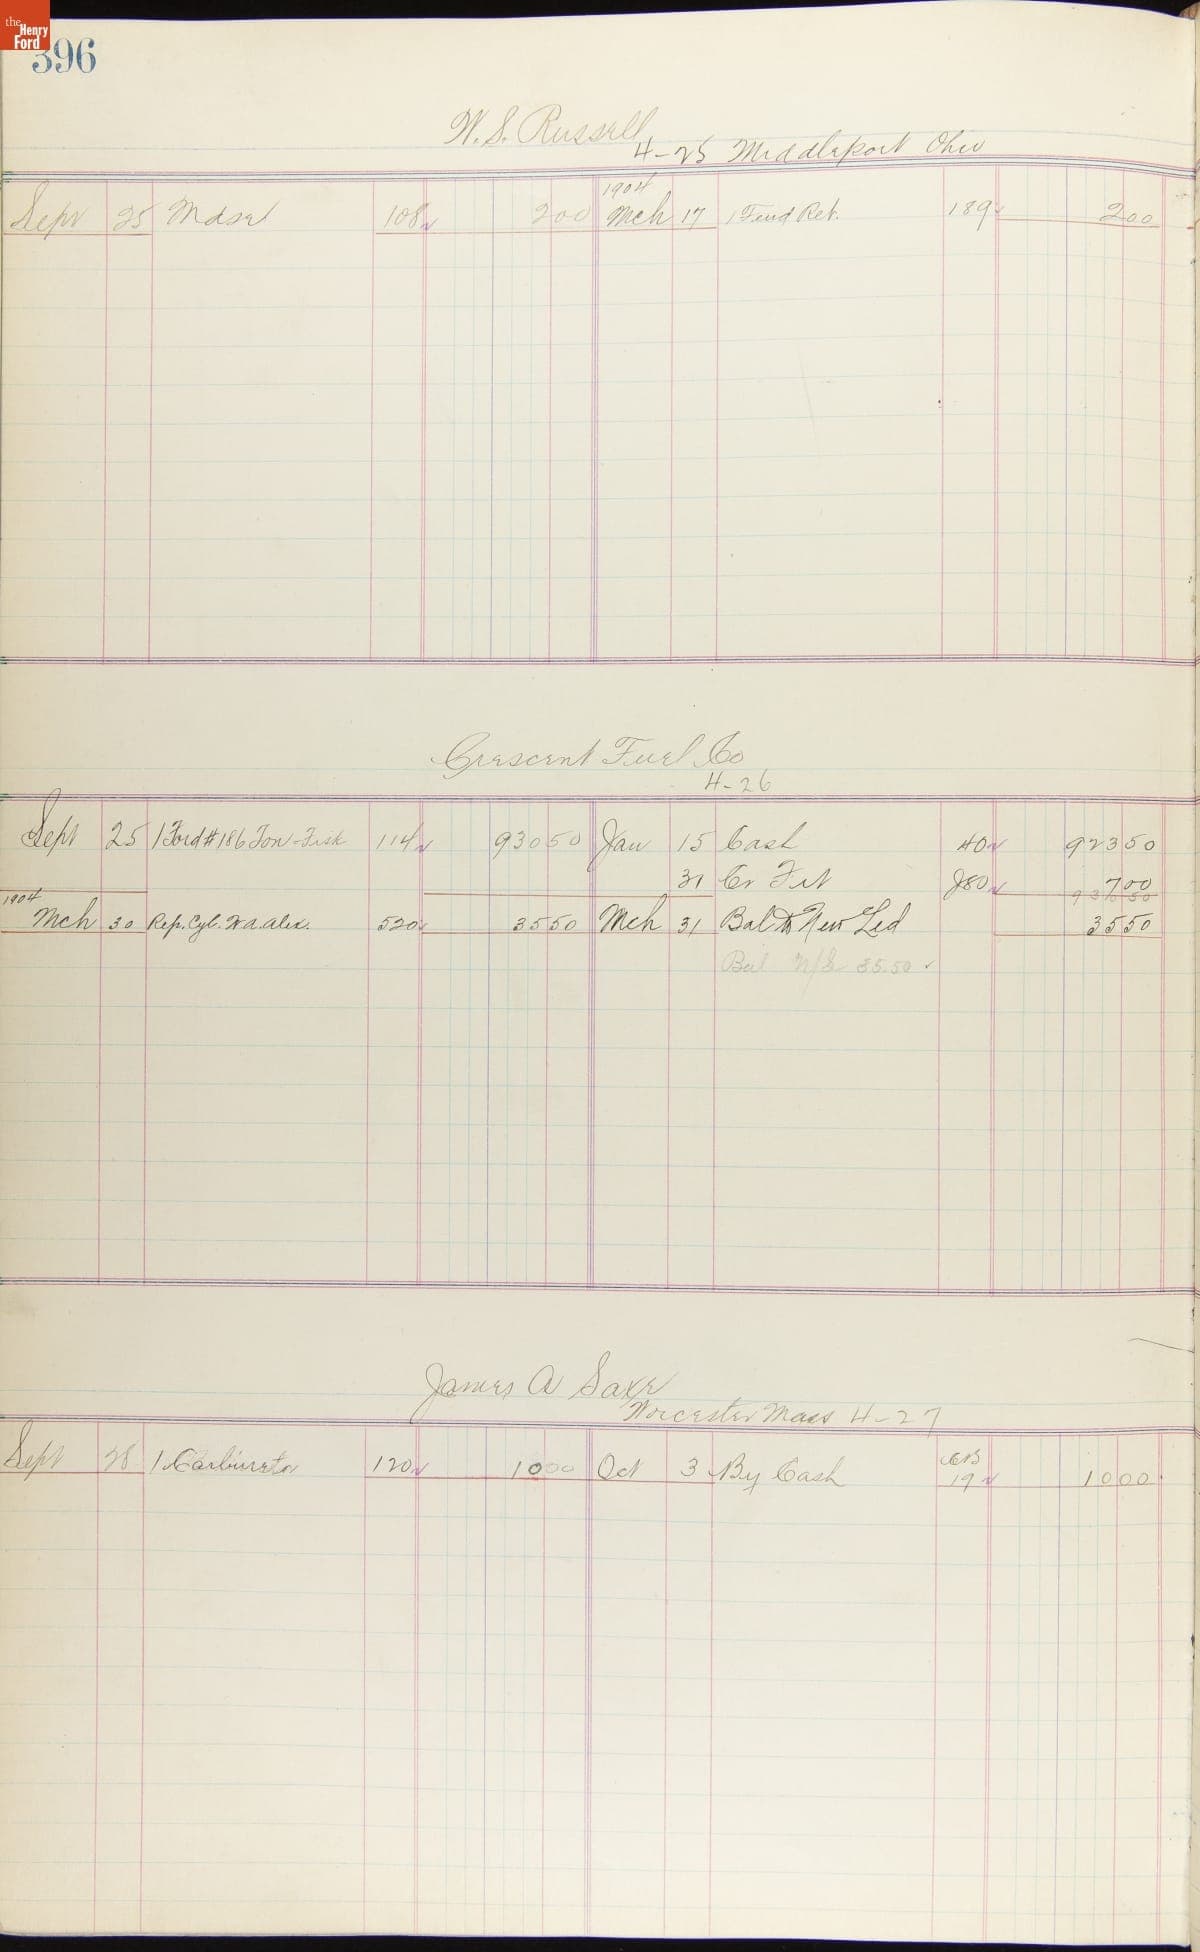 the Henry Ford
396
W. S. Russell
4-25 Middleport Ohio
1904
Sept 25 Mdse 108 200 Mch 17 1 Fend Ret. 189 200
Crescent Fuel Co
4-26
Sept 25 1 Ford #186 Ton-Fisk 114 93050 Jan 15 Cash 40 92350
31 Cr Frt J80 700
93050
1904
Mch 30 Rep. Cyl. 520 3550 Mch 31 Bal to New Led 3550
Bal N/L 35.50 ✓
James A Saxe
Worcester Mass 4-27
Sept 28 1 Carburetor 120 1000 Oct 3 By Cash CB 19 1000